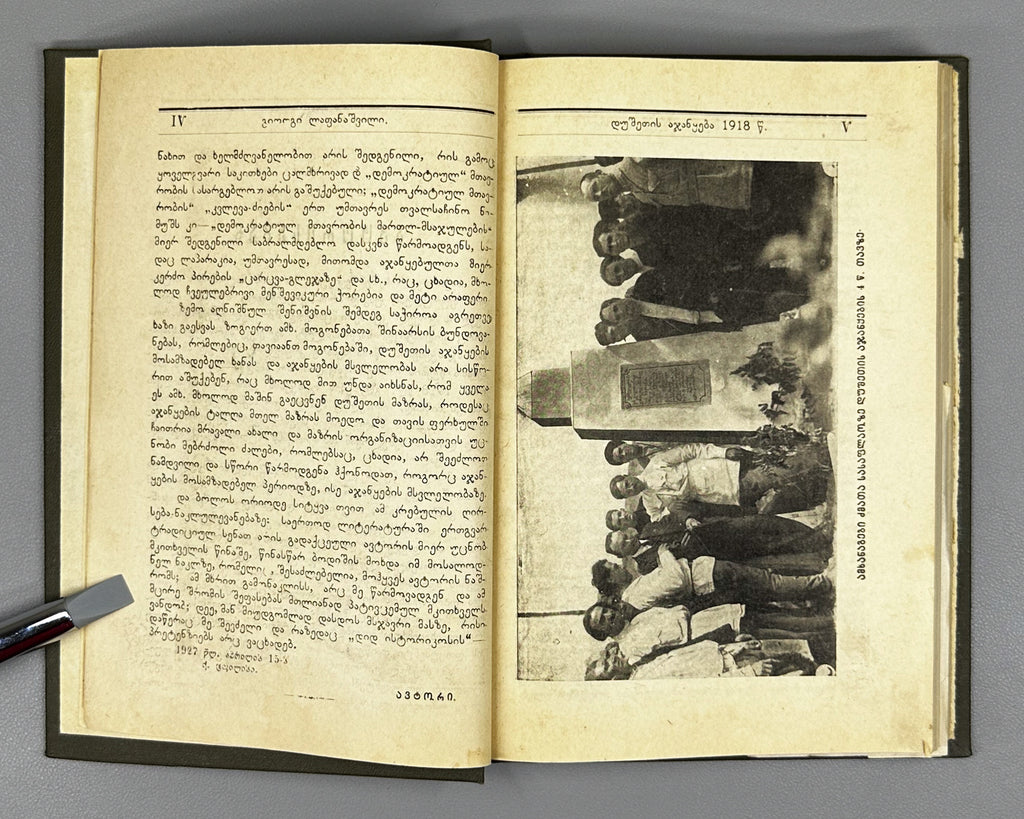 IV
გიორგი ლაფანაშვილი.
ნახით და ხელმძღვანელობით არის შედგენილი, რის გამოც
ყოველგვარი საკითხები ცალმხრივად დ „დემოკრატიულ“ მთავ-
რობის სასარგებლოთ არის გაშუქებული; „დემოკრატიულ მთავ-
რობის“ „კვლევა-ძიების“ ერთ უმთავრეს თვალსაჩინო ნი-
მუშს კი—„დემოკრატიულ მთავრობის მართლ-მსაჯულების“
მიერ შედგენილი საბრალმდებლო დასკვნა წარმოადგენს, სა-
დაც ლაპარაკია, უმთავრესად, მითომდა აჯანყებულთა მიერ
კერძო პირების „ცარცვა-გლეჯაზე“ და სხ., რაც, ცხადია, მხო-
ლოდ ჩვეულებრივი მენშევიკური ქორებია და მეტი არაფერი
ზემო აღნიშნულ შენიშვნის შემდეგ საჭიროა აგრეთვე
ხაზი გაესვას ზოგიერთ ამხ. მოგონებათა შინაარსის ბუნდოვა-
ნებას, რომლებიც, თავიანთ მოგონებაში, დუშეთის აჯანყების
მოსამზადებელ ხანას და აჯანყების მსვლელობას არა სისწო-
რით აშუქებენ, რაც მხოლოდ მით უნდა აიხსნას, რომ ყველა
ეს ამხ. მხოლოდ მაშინ გაეცვნენ დუშეთის მაზრას, როდესაც
აჯანყების ტალღა მთელ მაზრას მოედო და თავის ფერხულში
ჩაითრია მრავალი ახალი და მაზრის ორგანიზაციისათვის უც-
ნობი მებრძოლი ძალები, რომლებსაც, ცხადია, არ შეეძლოთ
ნამდვილი და სწორი წარმოდგენა ჰქონოდათ, როგორც აჯან-
ყების მოსამზადებელ პერიოდზე, ისე აჯანყების მსვლელობაზე.
და ბოლოს ორიოდე სიტყვა თვით ამ კრებულის ღირ-
სება-ნაკლულევანებაზე: საერთოდ ლიტერატურაში ერთგვარ
ტრადიციულ სენათ არის გადაქცეული ავტორის მიერ უცნობ
მკითხველის წინაშე, წინასწარ ბოდიშის მოხდა იმ მოსალოდ-
ნელ ნაკლზე, რომელიც, შესაძლებელია, მოჰყვეს ავტორის ნაშ-
რომს; ამ მხრით გამონაკლისს, არც მე წარმოვადგენ და ამ
მცირე შრომის შეფასებას მთლიანად პატივცემულ მკითხველს
ვანდობ; დეე, მან მიუდგომლად დასდოს მსჯავრი მასზე, რისი
დაწერაც მე შევძელი და რაზედაც „დიდ ისტორიკოსის“—
პრეტენზიებს არც ვაცხადებ.
1927 წლ. აპრილის 15-ს
ქ. ტფილისი.
ავტორი.
დუშეთის აჯანყება 1918 წ.
V
ამხანაგები ძმათა სასაფლაოზე დუშეთის აჯანყების მე წ. თავზე